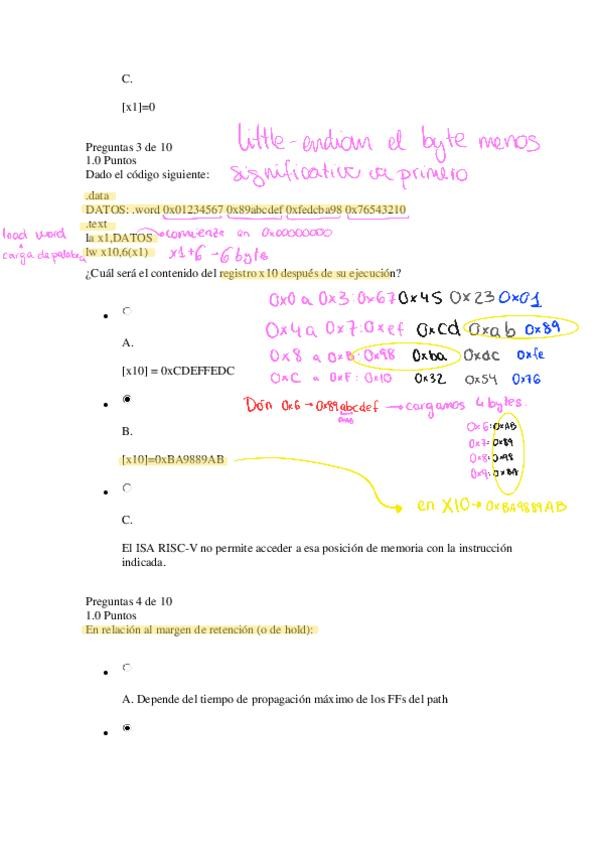 C.
[x1]=0
Little-endian el byte menos
significativo va primero
Preguntas 3 de 10
1.0 Puntos
Dado el código siguiente:
.data
DATOS: .word 0x01234567 0x89abcdef 0xfedcba98 0x76543210
.text
load word
la x1,DATOS
→ comienza en 0x00000000
carga de palabra
lw x10,6(x1)
x1+6 → 6 byte
¿Cuál será el contenido del registro x10 después de su ejecución?
0x0 a 0x3: 0x67 0x45 0x23 0x01
0x4 a 0x7: 0xef 0xcd 0xab 0x89
0x8 a 0xB: 0x98 0xba 0xdc 0xfe
0xC a 0xF: 0x10 0x32 0x54 0x76
A.
[x10] = 0xCDEFFEDC
0x6 → 0x89abcdef → cargamos 4 bytes.
0x6: 0xAB
0x7: 0x89
0x8: 0x98
0x9: 0xBA
B.
[x10]=0xBA9889AB
en X10 → 0xBA9889AB
C.
El ISA RISC-V no permite acceder a esa posición de memoria con la instrucción
indicada.
Preguntas 4 de 10
1.0 Puntos
En relación al margen de retención (o de hold):
A. Depende del tiempo de propagación máximo de los FFs del path